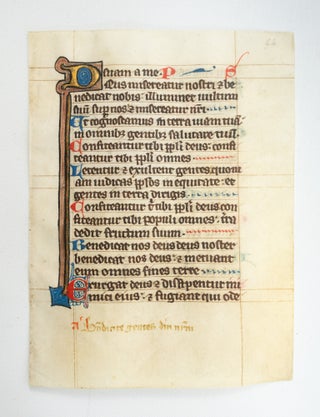 suam a me. P S
Deus misereatur nostri & be
nedicat nobis: illuminet vultum
suū sup nos & misereatur nr̄i.
Ut cognoscamus in terra viam tuā
in omnibȝ gentibȝ salutare tuū.
Confiteantur tibi ppl̄i deus: confi
teantur tibi ppl̄i omnes
Letentur & exultent gentes: quoniam
iudicas ppl̄os in equitate: et
gentes in terra dirigis
Confiteantur tibi ppl̄i deus: con
fiteantur tibi populi omnes: terra
dedit fructum suum.
Benedicat nos deus deus noster
benedicat nos deus: & metuant
eum omnes fines terre
Exurgat deus & dissipentur ini
mici eius: & fugiant qui ode
Bn̄dicite gentes dm̄ nr̄m